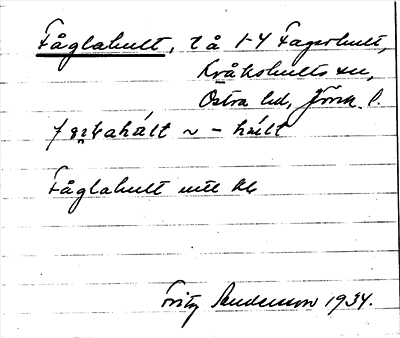 Fåglahult, t å 1-4 Fagerhult,
Kråkshults sn,
Östra hd, Jönk. l.
~ - hált
Fåglahult
Fritz Andersson 1934.